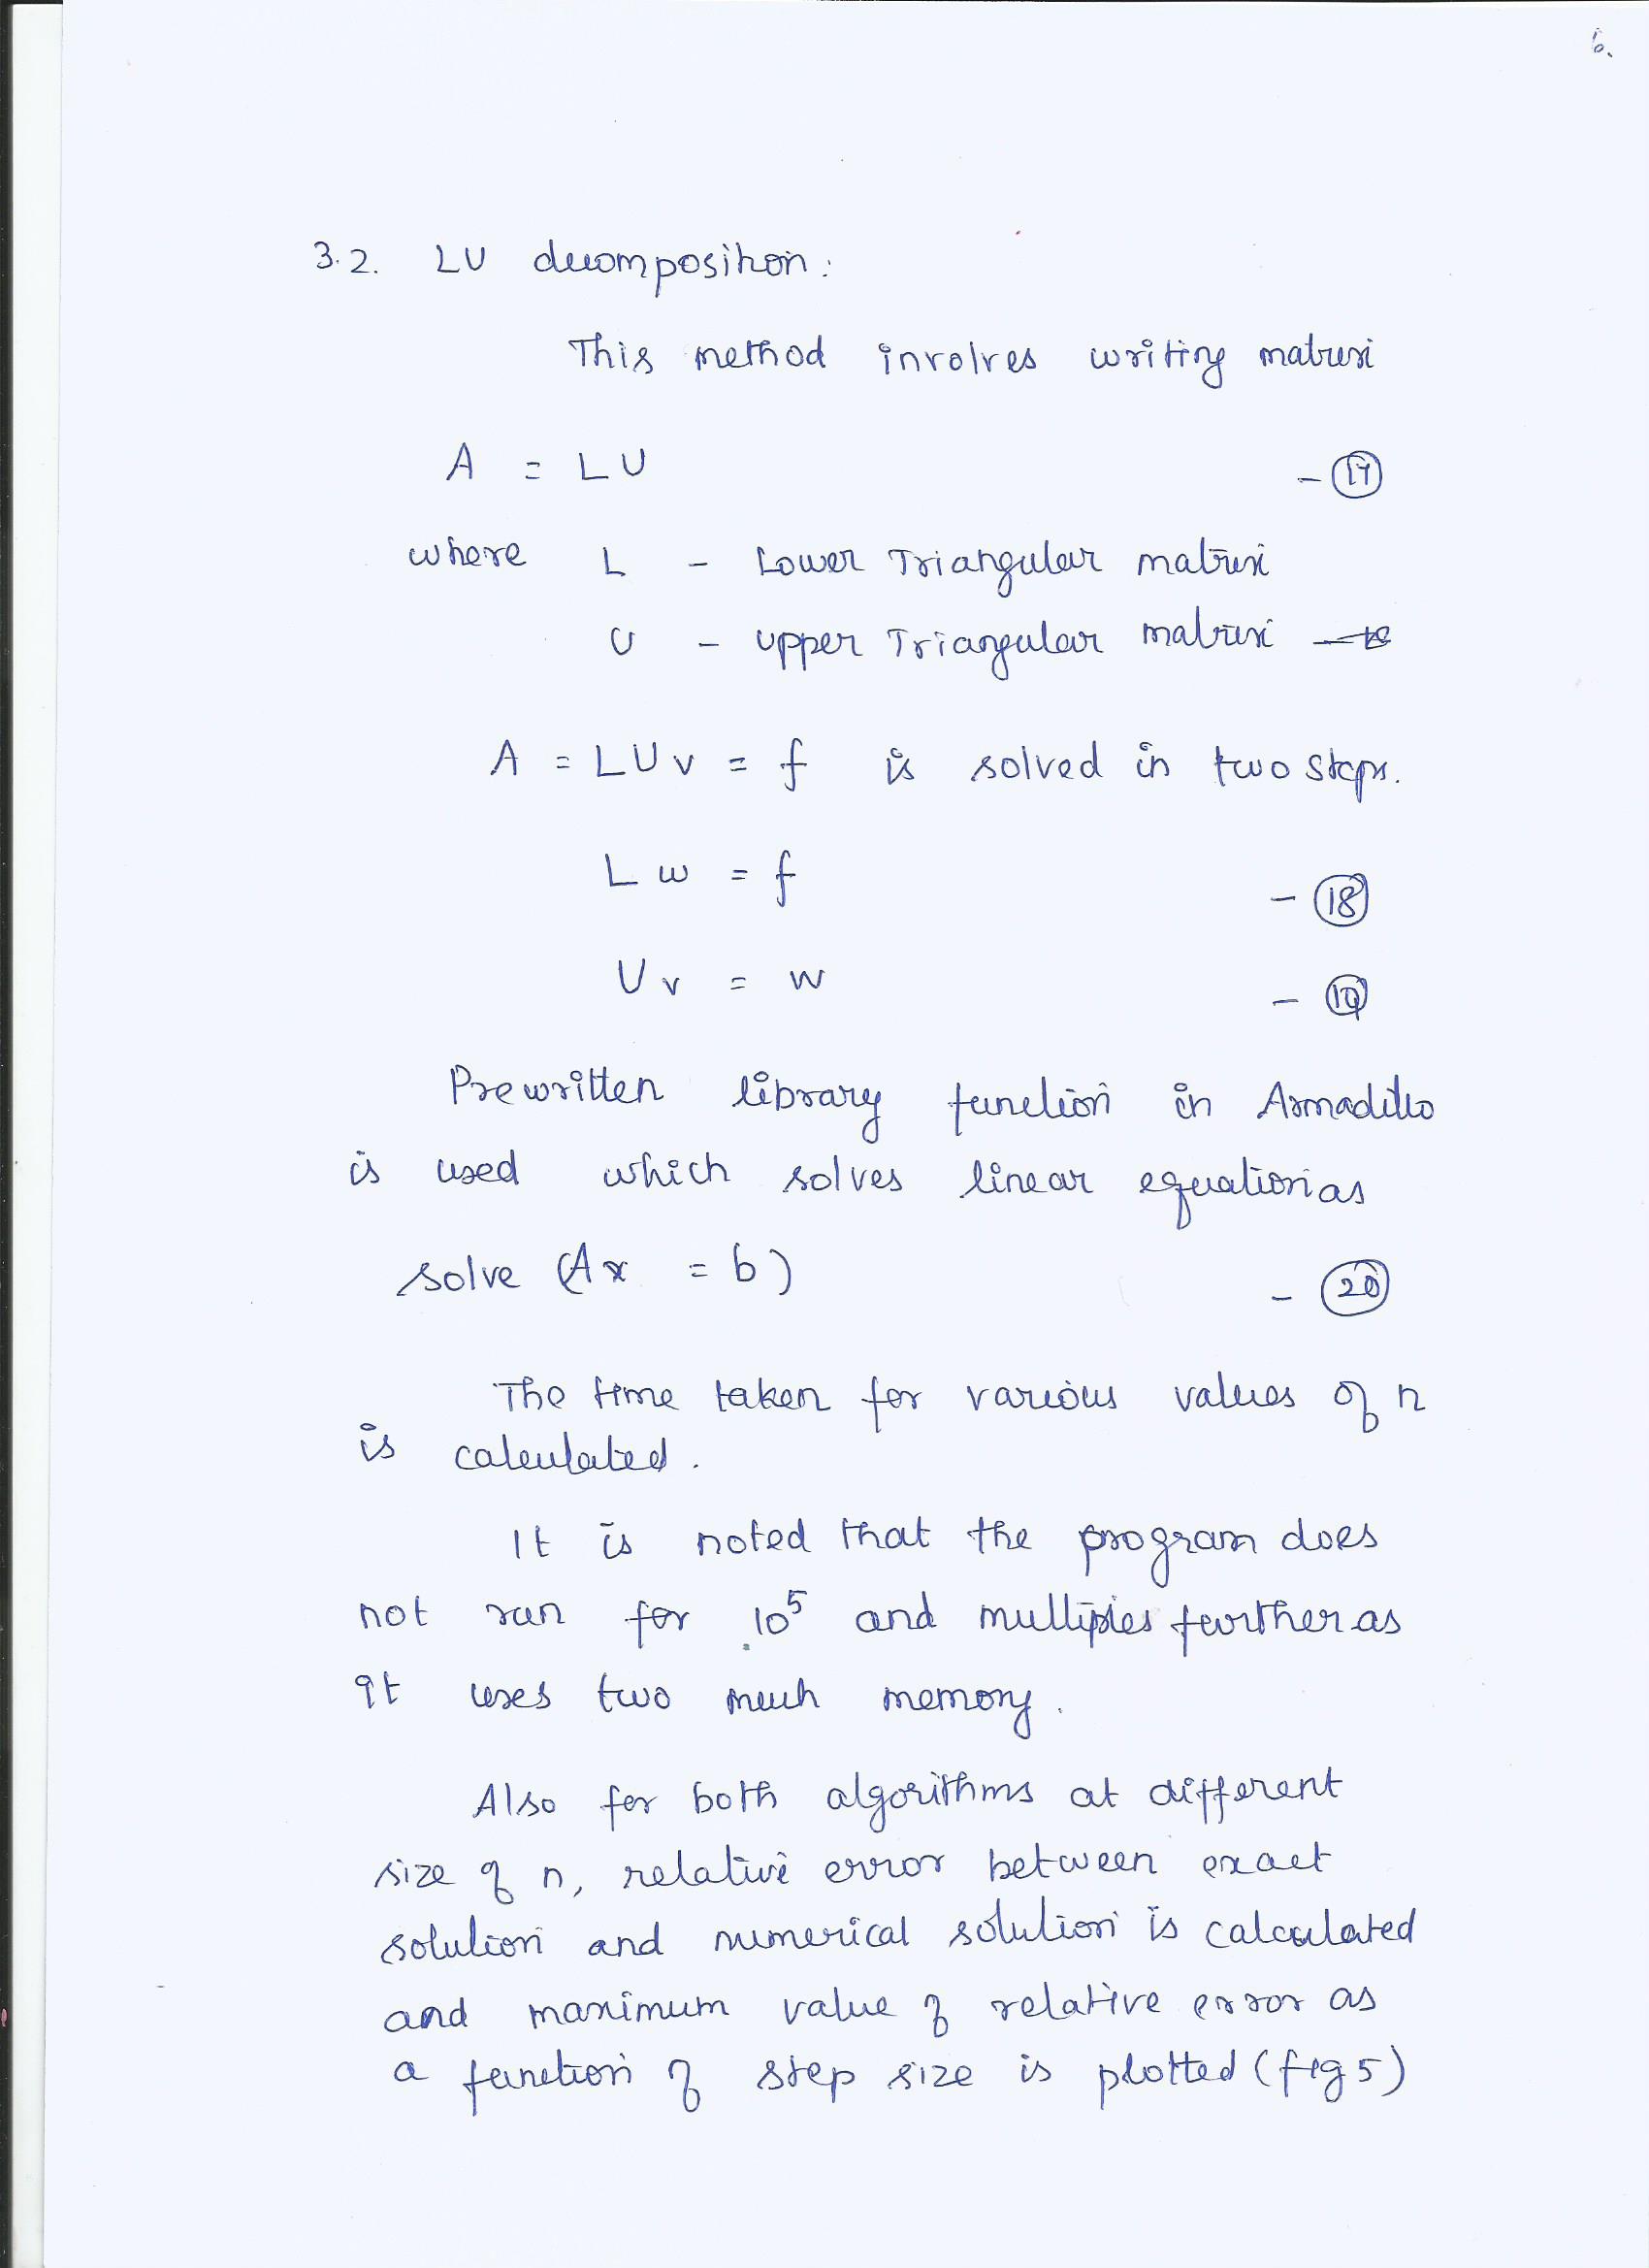 6.
3.2. LU decomposition:
This method involves writing matrix
A = LU - 17
where L - Lower Triangular matrix
U - upper Triangular matrix
A = LUv = f is solved in two steps.
Lw = f - 18
Uv = w - 19
Prewritten library function in Armadillo
is used which solves linear equation as
solve (Ax = b) - 20
The time taken for various values of n
is calculated.
It is noted that the program does
not run for 10⁵ and multiples further as
it uses two much memory.
Also for both algorithms at different
size of n, relative error between exact
solution and numerical solution is calculated
and maximum value of relative error as
a function of step size is plotted (fig 5)